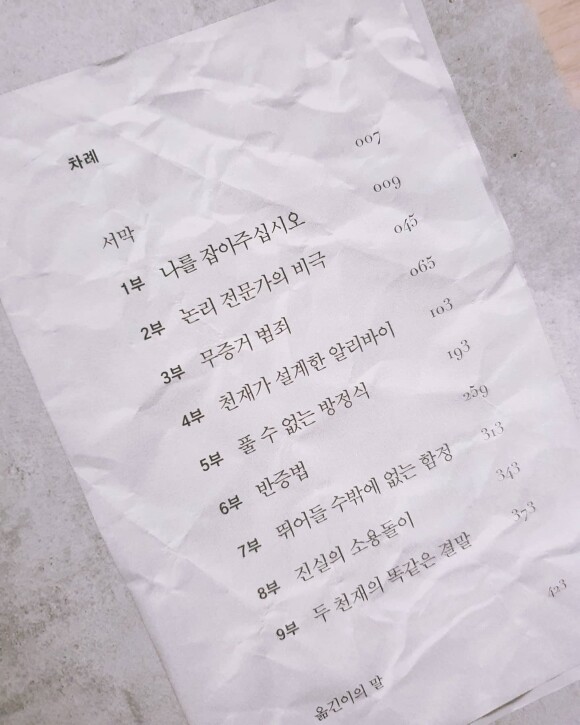 차례
서막 007
1부 나를 잡아주십시오 009
2부 논리 전문가의 비극 045
3부 무증거 범죄 065
4부 천재가 설계한 알리바이 103
5부 풀 수 없는 방정식 193
6부 반증법 259
7부 뛰어들 수밖에 없는 함정 313
8부 진실의 소용돌이 343
9부 두 천재의 똑같은 결말 373
옮긴이의 말 423